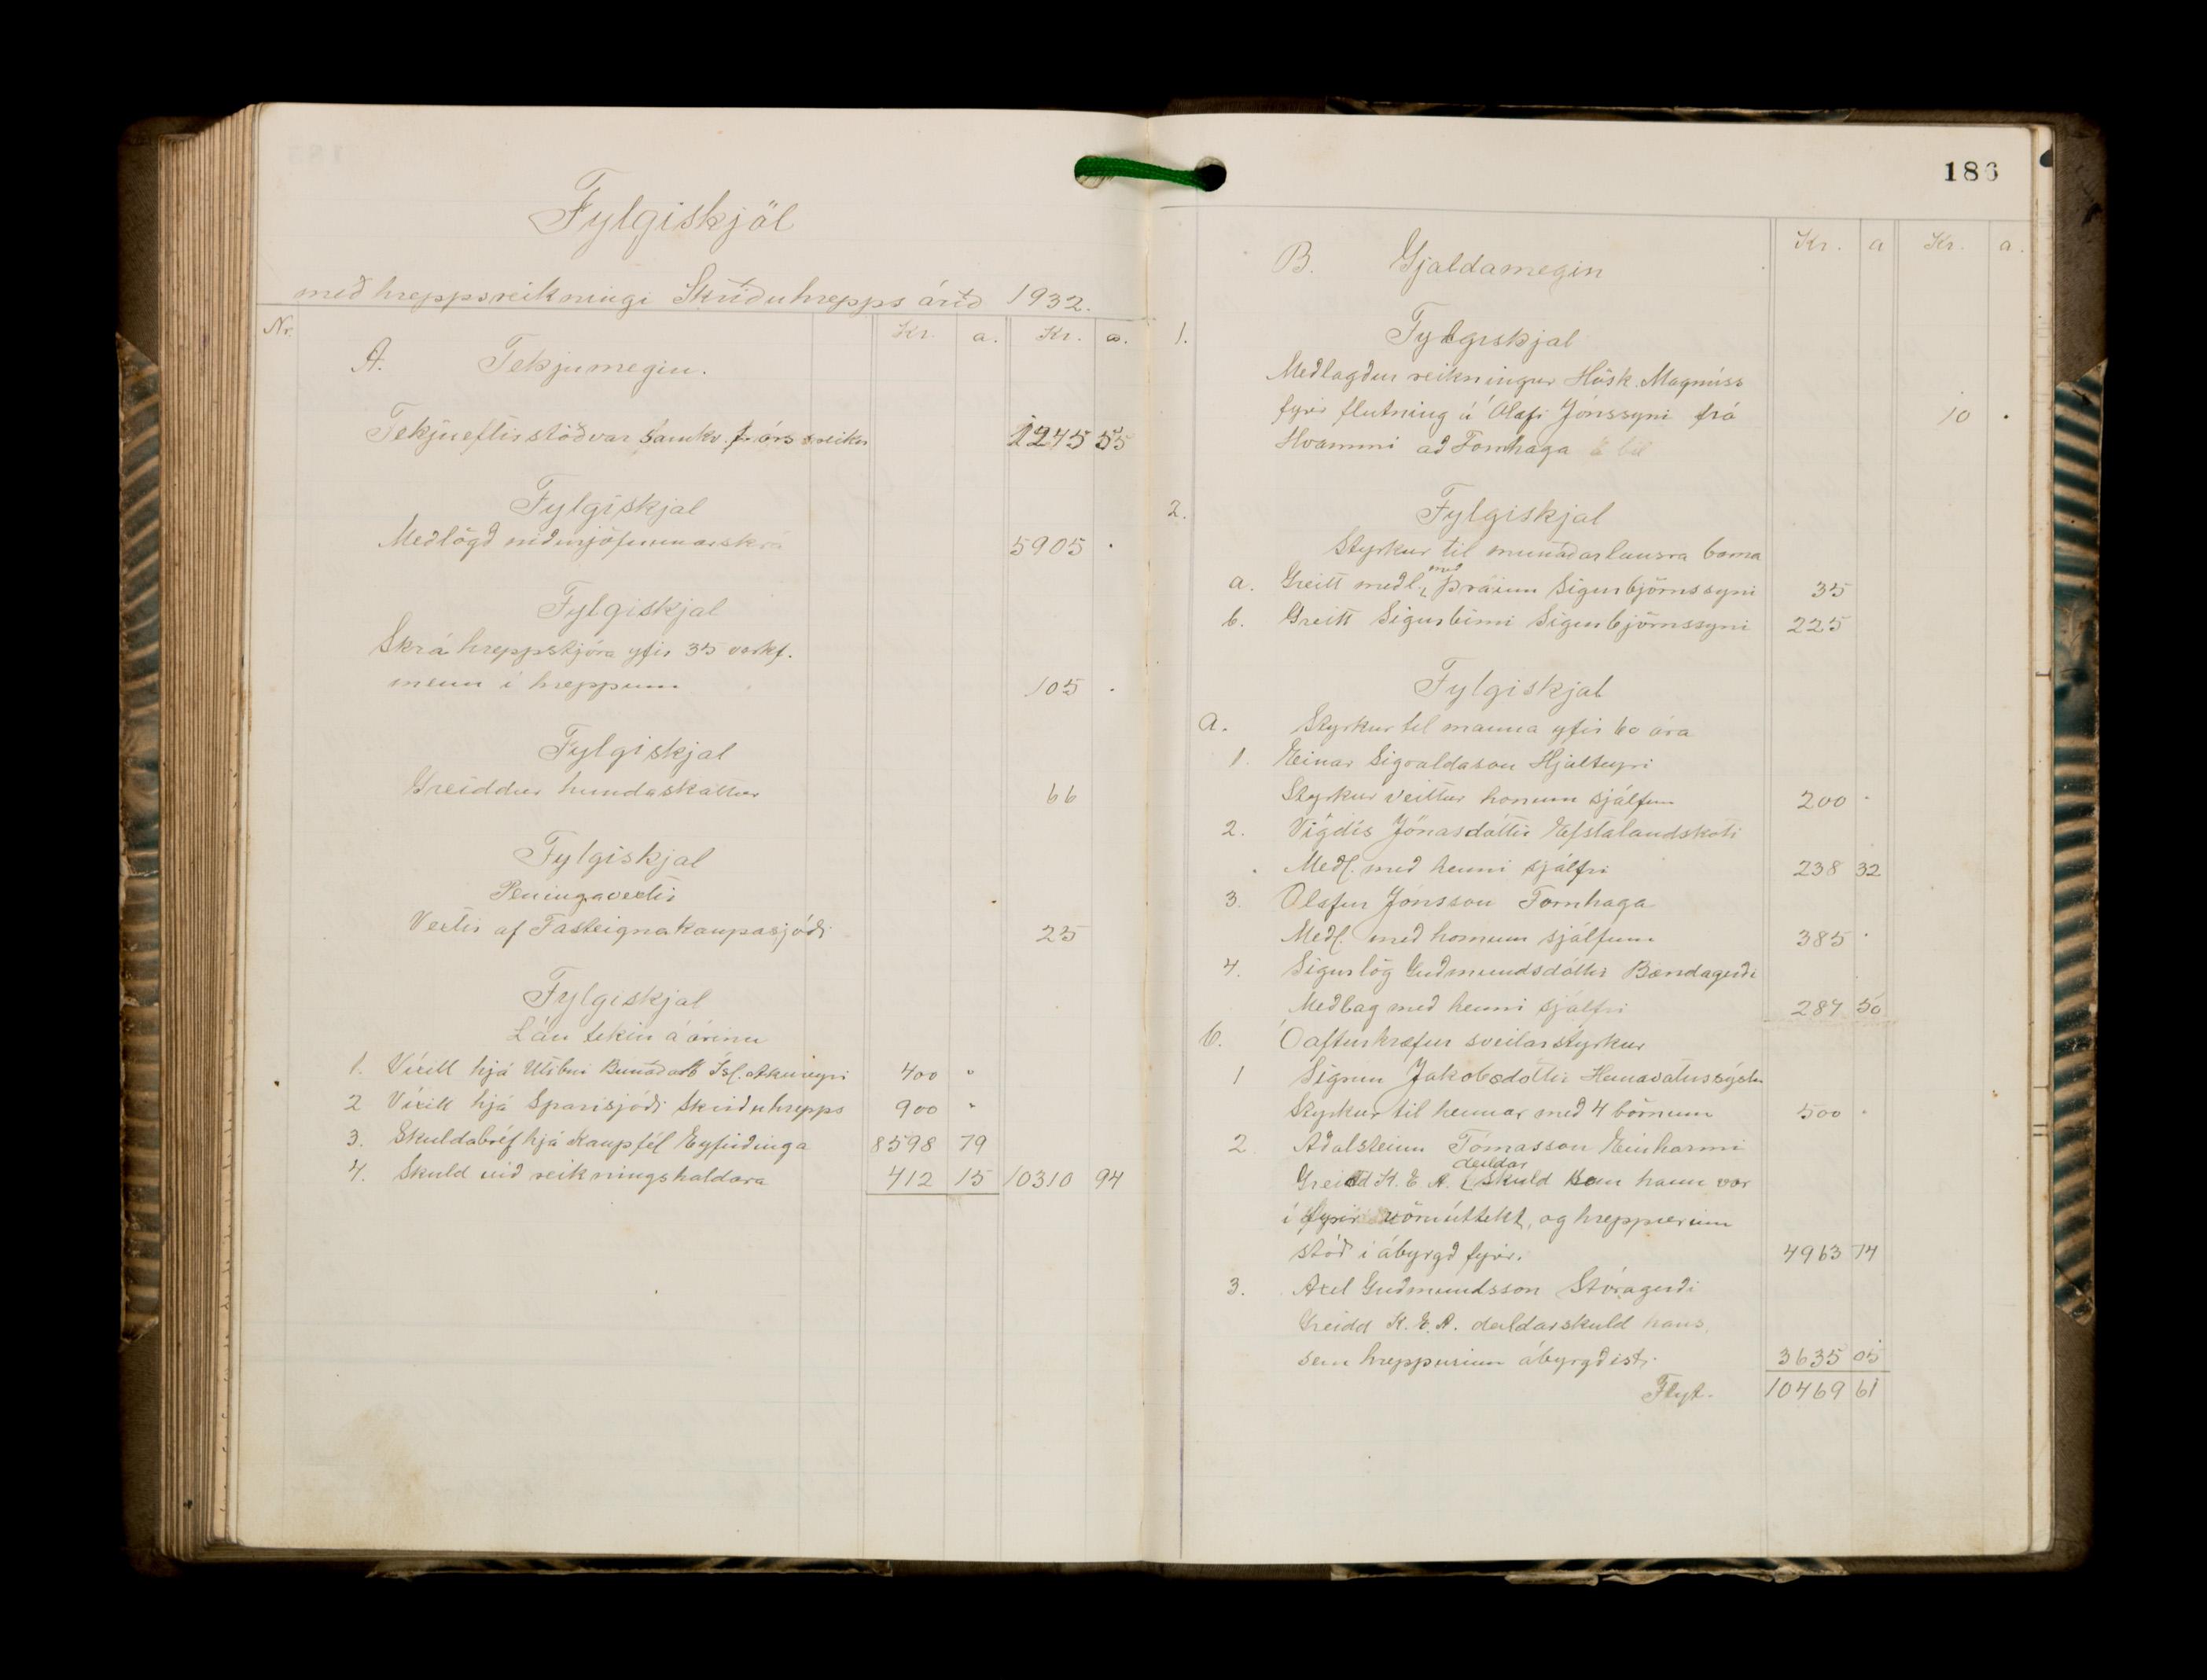 Fylgiskjöl
með hreppsreikningi Skriðuhrepps árið 1932.
Nr. Kr. a. Kr. a.
A. Tekjumegin.
Tekjueftirstöðvar samkv. f. árs reikn 1245 55
Fylgiskjal
Meðlögð niðurjöfnunarskrá 5905 .
Fylgiskjal
Skrá hreppstjóra yfir 35 verkf.
menn í hreppnum 105 .
Fylgiskjal
Greiddur hundaskattur 66
Fylgiskjal
Peningavextir
Vextir af Fasteignakaupasjóði 25
Fylgiskjal
Lán tekin á árinu
1. Víxill hjá Útibúi Búnaðarb Ísl. Akureyri 400 "
2 Víxill hjá Sparisjóði Skriðuhrepps 900 "
3. Skuldabréf hjá Kaupfél Eyfirðinga 8598 79
4. Skuld við reikningshaldara 412 15 10310 94
186
Kr. a Kr. a.
B. Gjaldamegin
1. Fylgiskjal
Meðlagður reikningur Hösk. Magnúss
fyrir flutning á Ólafi Jónssyni frá 10 .
Hvammi að Fornhaga á bíl
2. Fylgiskjal
Styrkur til munaðarlausra barna
a. Greitt meðl. með Þráinn Sigurbjörnssyni 35
b. Greitt Sigurbirni Sigurbjörnssyni 225
Fylgiskjal
a. Styrkur til manna yfir 60 ára
1. Einar Sigvaldason Hjalteyri
Styrkur veittur honum sjálfum 200 "
2. Vigdís Jónasdóttir Efstalandskoti
Meðl. með henni sjálfri 238 32
3. Ólafur Jónsson Fornhaga
Meðl. með honum sjálfum 385 "
4. Sigurlög Guðmundsdóttir Bændagerði
Meðlag með henni sjálfri 287 50
b. Óafturkræfur sveitarstyrkur
1 Sigrún Jakobsdóttir Húnavatnssýslu
Styrkur til hennar með 4 börnum 500 .
2 Aðalsteinn Tómasson Einhamri
Greidd K. E. A. deildarskuld sem hann var
í fyrir vöruúttekt, og hreppurinn
stóð í ábyrgð fyrir. 4963 74
3. Axel Guðmundsson Stóragerði
Greidd K. E. A. deildarskuld hans,
sem hreppurinn ábyrgðist. 3635 05
Flyt. 10469 61